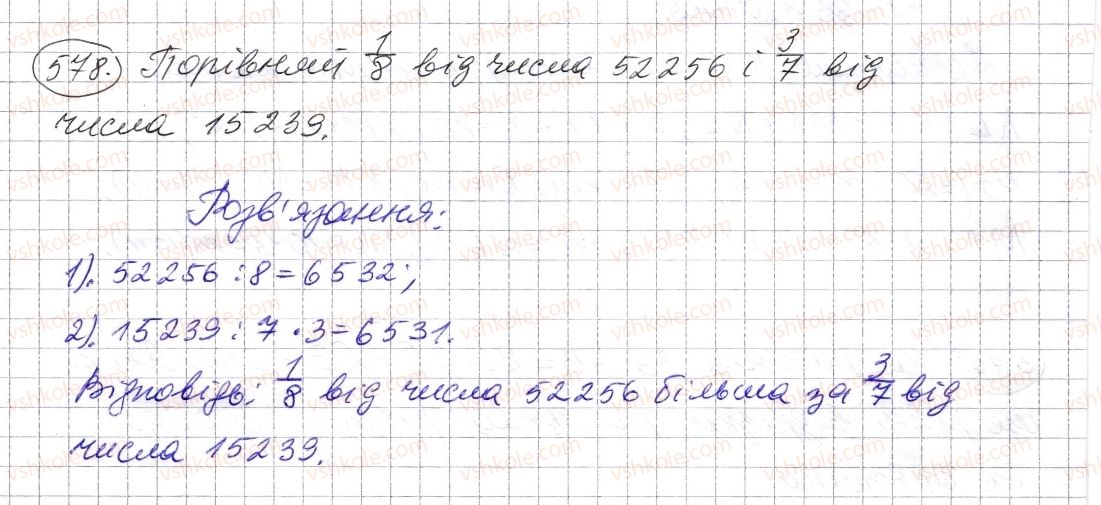 578. Порівняй 1/8 від числа 52256 і 3/7 від
числа 15239.
Розв'язання:
1). 52256 : 8 = 6532;
2). 15239 : 7 · 3 = 6531.
Відповідь: 1/8 від числа 52256 більша за 3/7 від
числа 15239.